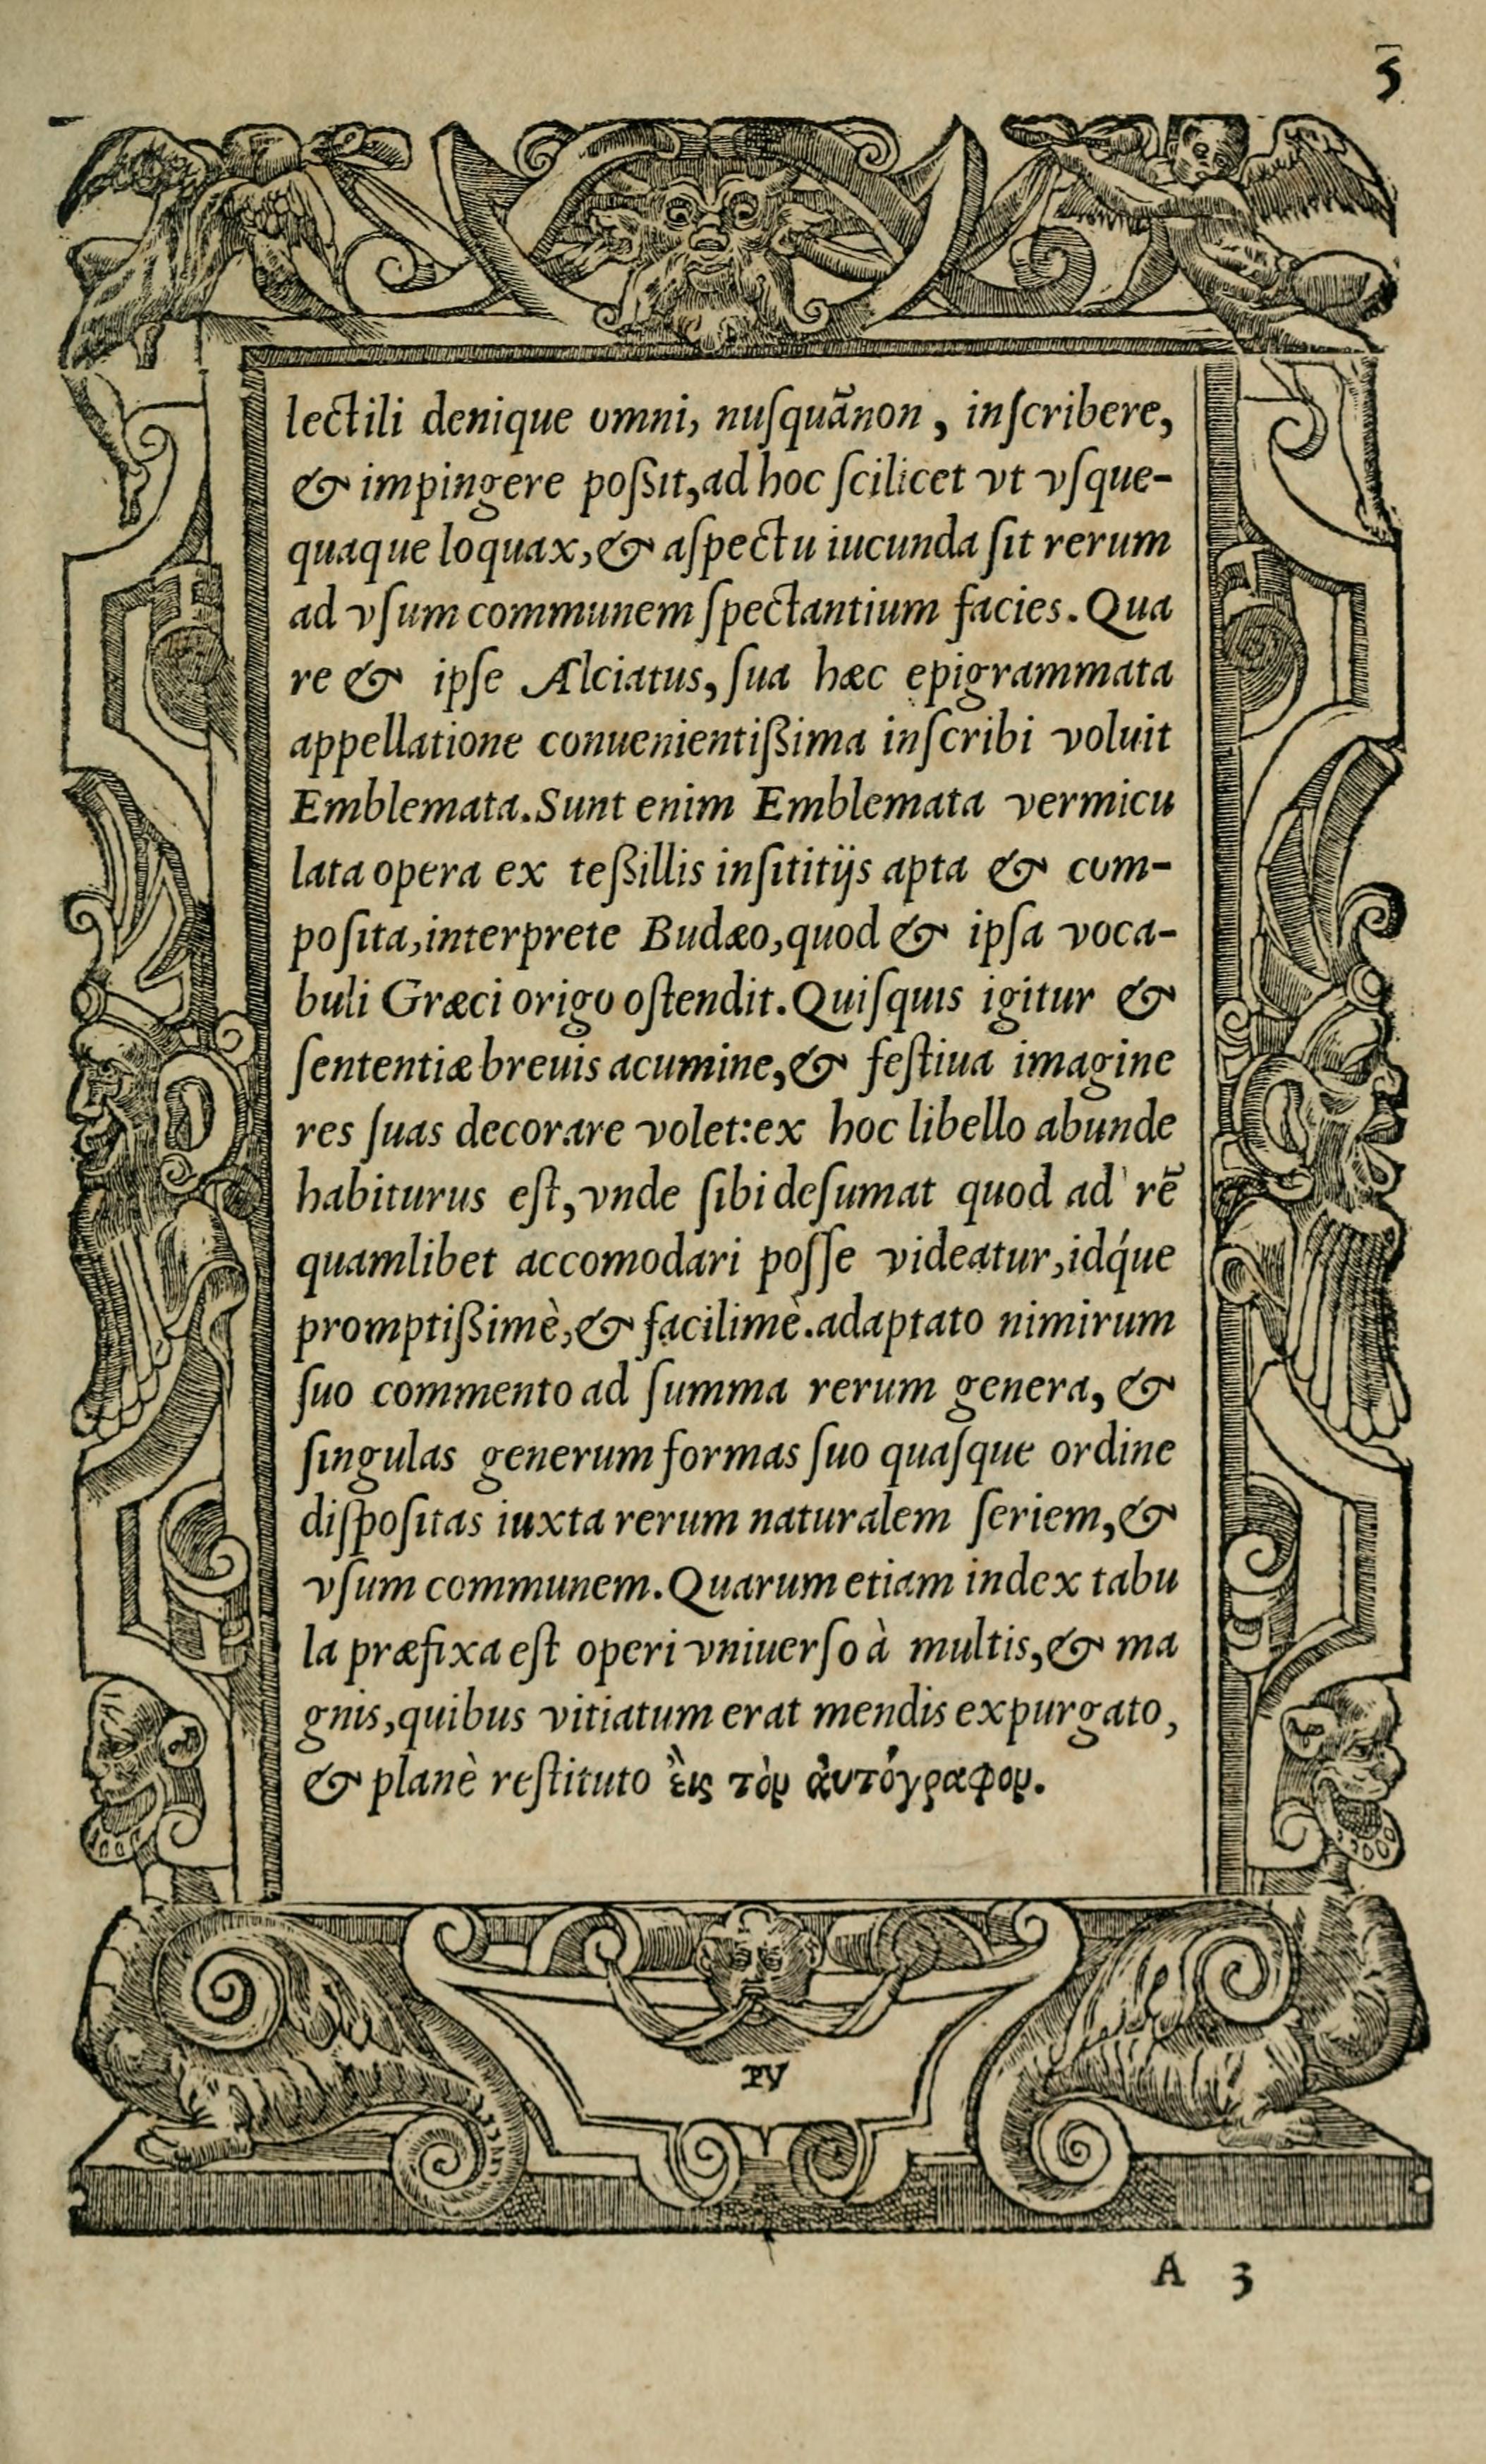 5
lectili denique omni, nusquãnon, inscribere,
& impingere poſsit, ad hoc ſcilicet vt vſque-
quaque loquax, & aſpectu iucunda ſit rerum
ad vſum communem ſpectantium facies. Qua
re & ipſe Alciatus, ſua hæc epigrammata
appellatione conuenientiſsima inſcribi voluit
Emblemata. Sunt enim Emblemata vermicu
lata opera ex teſsillis inſititijs apta & com-
poſita, interprete Budæo, quod & ipſa voca-
buli Græci origo oſtendit. Quiſquis igitur &
ſententiæ breuis acumine, & feſtiua imagine
res ſuas decorare volet: ex hoc libello abunde
habiturus eſt, vnde ſibi deſumat quod ad rẽ
quamlibet accomodari poſſe videatur, idq́ue
promptiſsimè, & facilimè. adaptato nimirum
ſuo commento ad ſumma rerum genera, &
ſingulas generum formas ſuo quaſque ordine
diſpoſitas iuxta rerum naturalem ſeriem, &
vſum communem. Quarum etiam index tabu
la præfixa eſt operi vniuerſo à multis, & ma
gnis, quibus vitiatum erat mendis expurgato,
& planè reſtituto ἒις τὸν ἀυτόγραφον.
PV
A 3